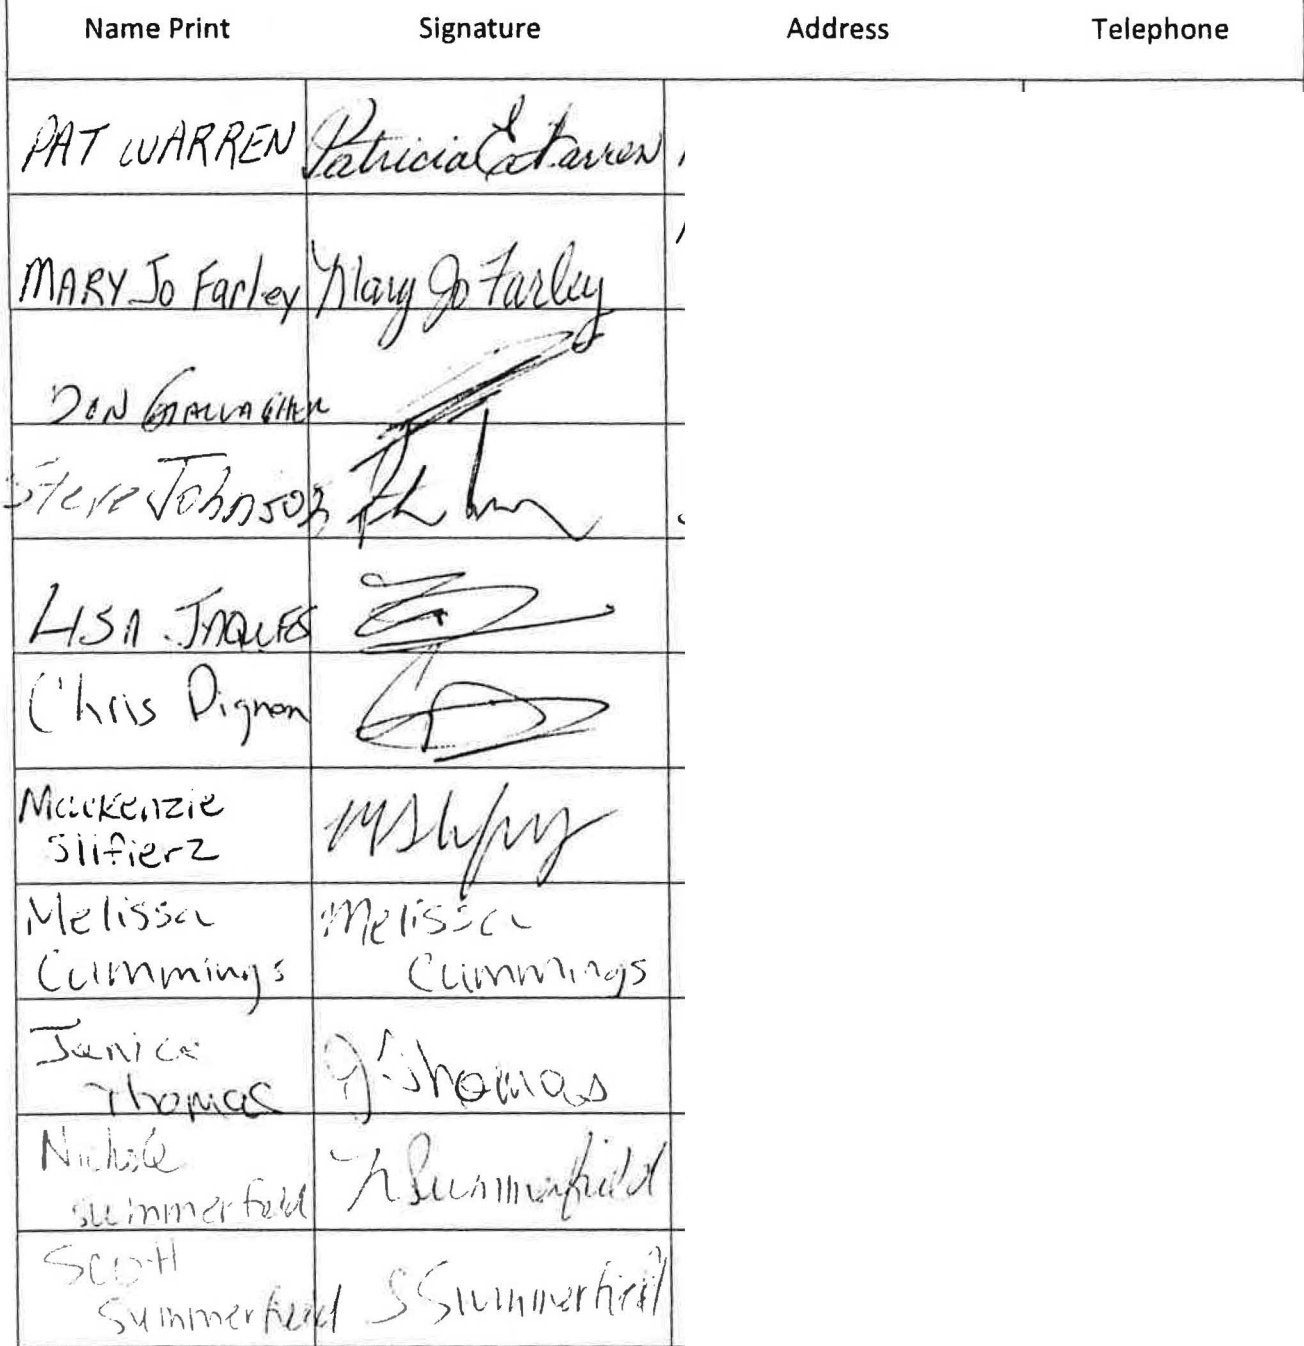 Name Print Signature Address Telephone
PAT WARREN Patricia E Warren
MARY Jo Farley Mary Jo Farley
DON GALLAGHER
Steve Johnson
LISA JAQUES
Chris Dignan
Mackenzie
Slifierz
Melissa Melissa
Cummings Cummings
Janice
Thomas J Thomas
Nichole
summerfield N Summerfield
Scott
Summerfield S Summerfield